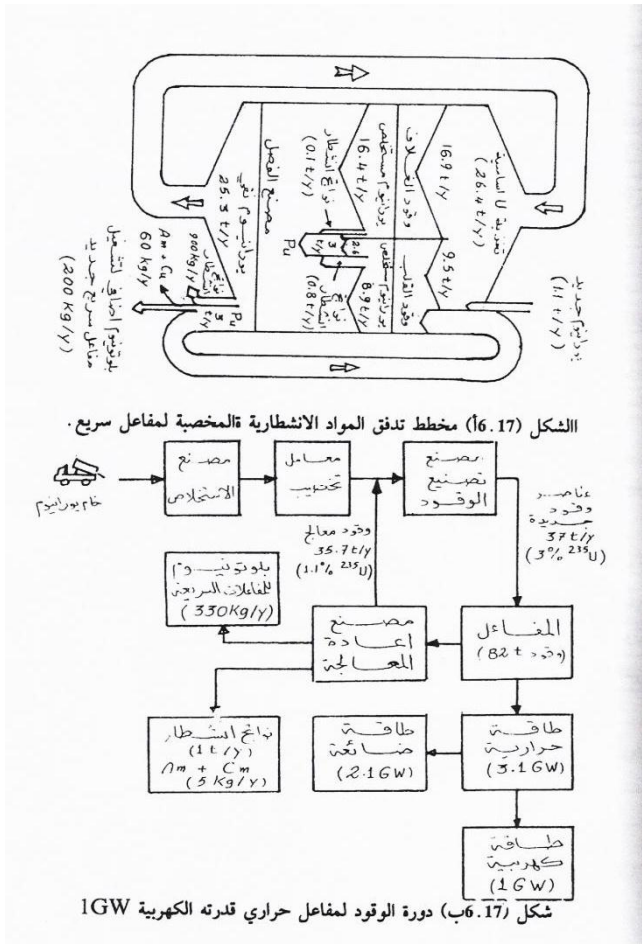 تغذية U اساسية
(26.4 t/y)
16.9 t/y
9.5 t/y
يورانيوم جديد
(1.1 t/y)
وقود الغلاف
وقود القلب
يورانيوم مستخلص
16.4 t/y
نواتج انشطار
(0.1 t/y)
2.6
3
t/y
Pu
يورانيوم مستخلص
8.9 t/y
نواتج
انشطار
(0.8 t/y)
مصنع الفصل
يورانيوم نقي
25.3 t/y
نواتج
انشطار
900 kg/y
Pu
3
t/y
Am + Cu
60 kg/y
بلوتونيوم اضافي لتشغيل
مفاعل سريع جديد
(200 Kg/y)
االشكل (6.17أ) مخطط تدفق المواد الانشطارية ةالمخصبة لمفاعل سريع.
خام يورانيوم
مصنع
الاستخلاص
معامل
تخصيب
مصنع
تصنيع
الوقود
عناصر
وقود
جديدة
37 t/y
(3% ²³⁵U)
وقود معالج
35.7 t/y
(1.1% ²³⁵U)
بلوتونيوم
للمفاعلات السريعة
(330 Kg/y)
مصنع
اعادة
المعالجة
المفاعل
(وقود 82 t)
نواتج انشطار
(1 t/y)
Am + Cm
(5 Kg/y)
طاقة
ضائعة
(2.1 GW)
طاقة
حرارية
(3.1 GW)
طاقة
كهربية
(1 GW)
شكل (6.17ب) دورة الوقود لمفاعل حراري قدرته الكهربية 1GW